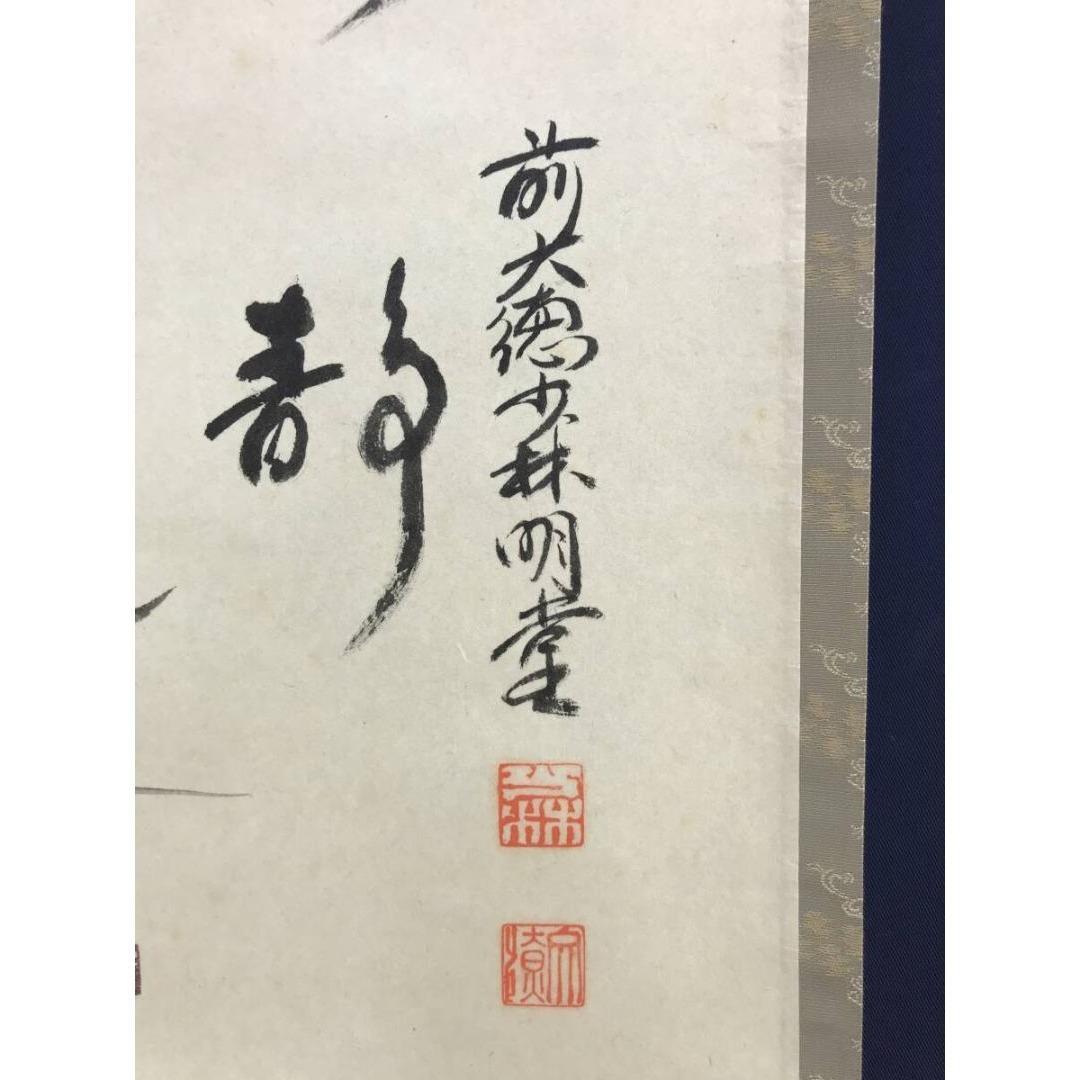 前大徳少林明堂
静